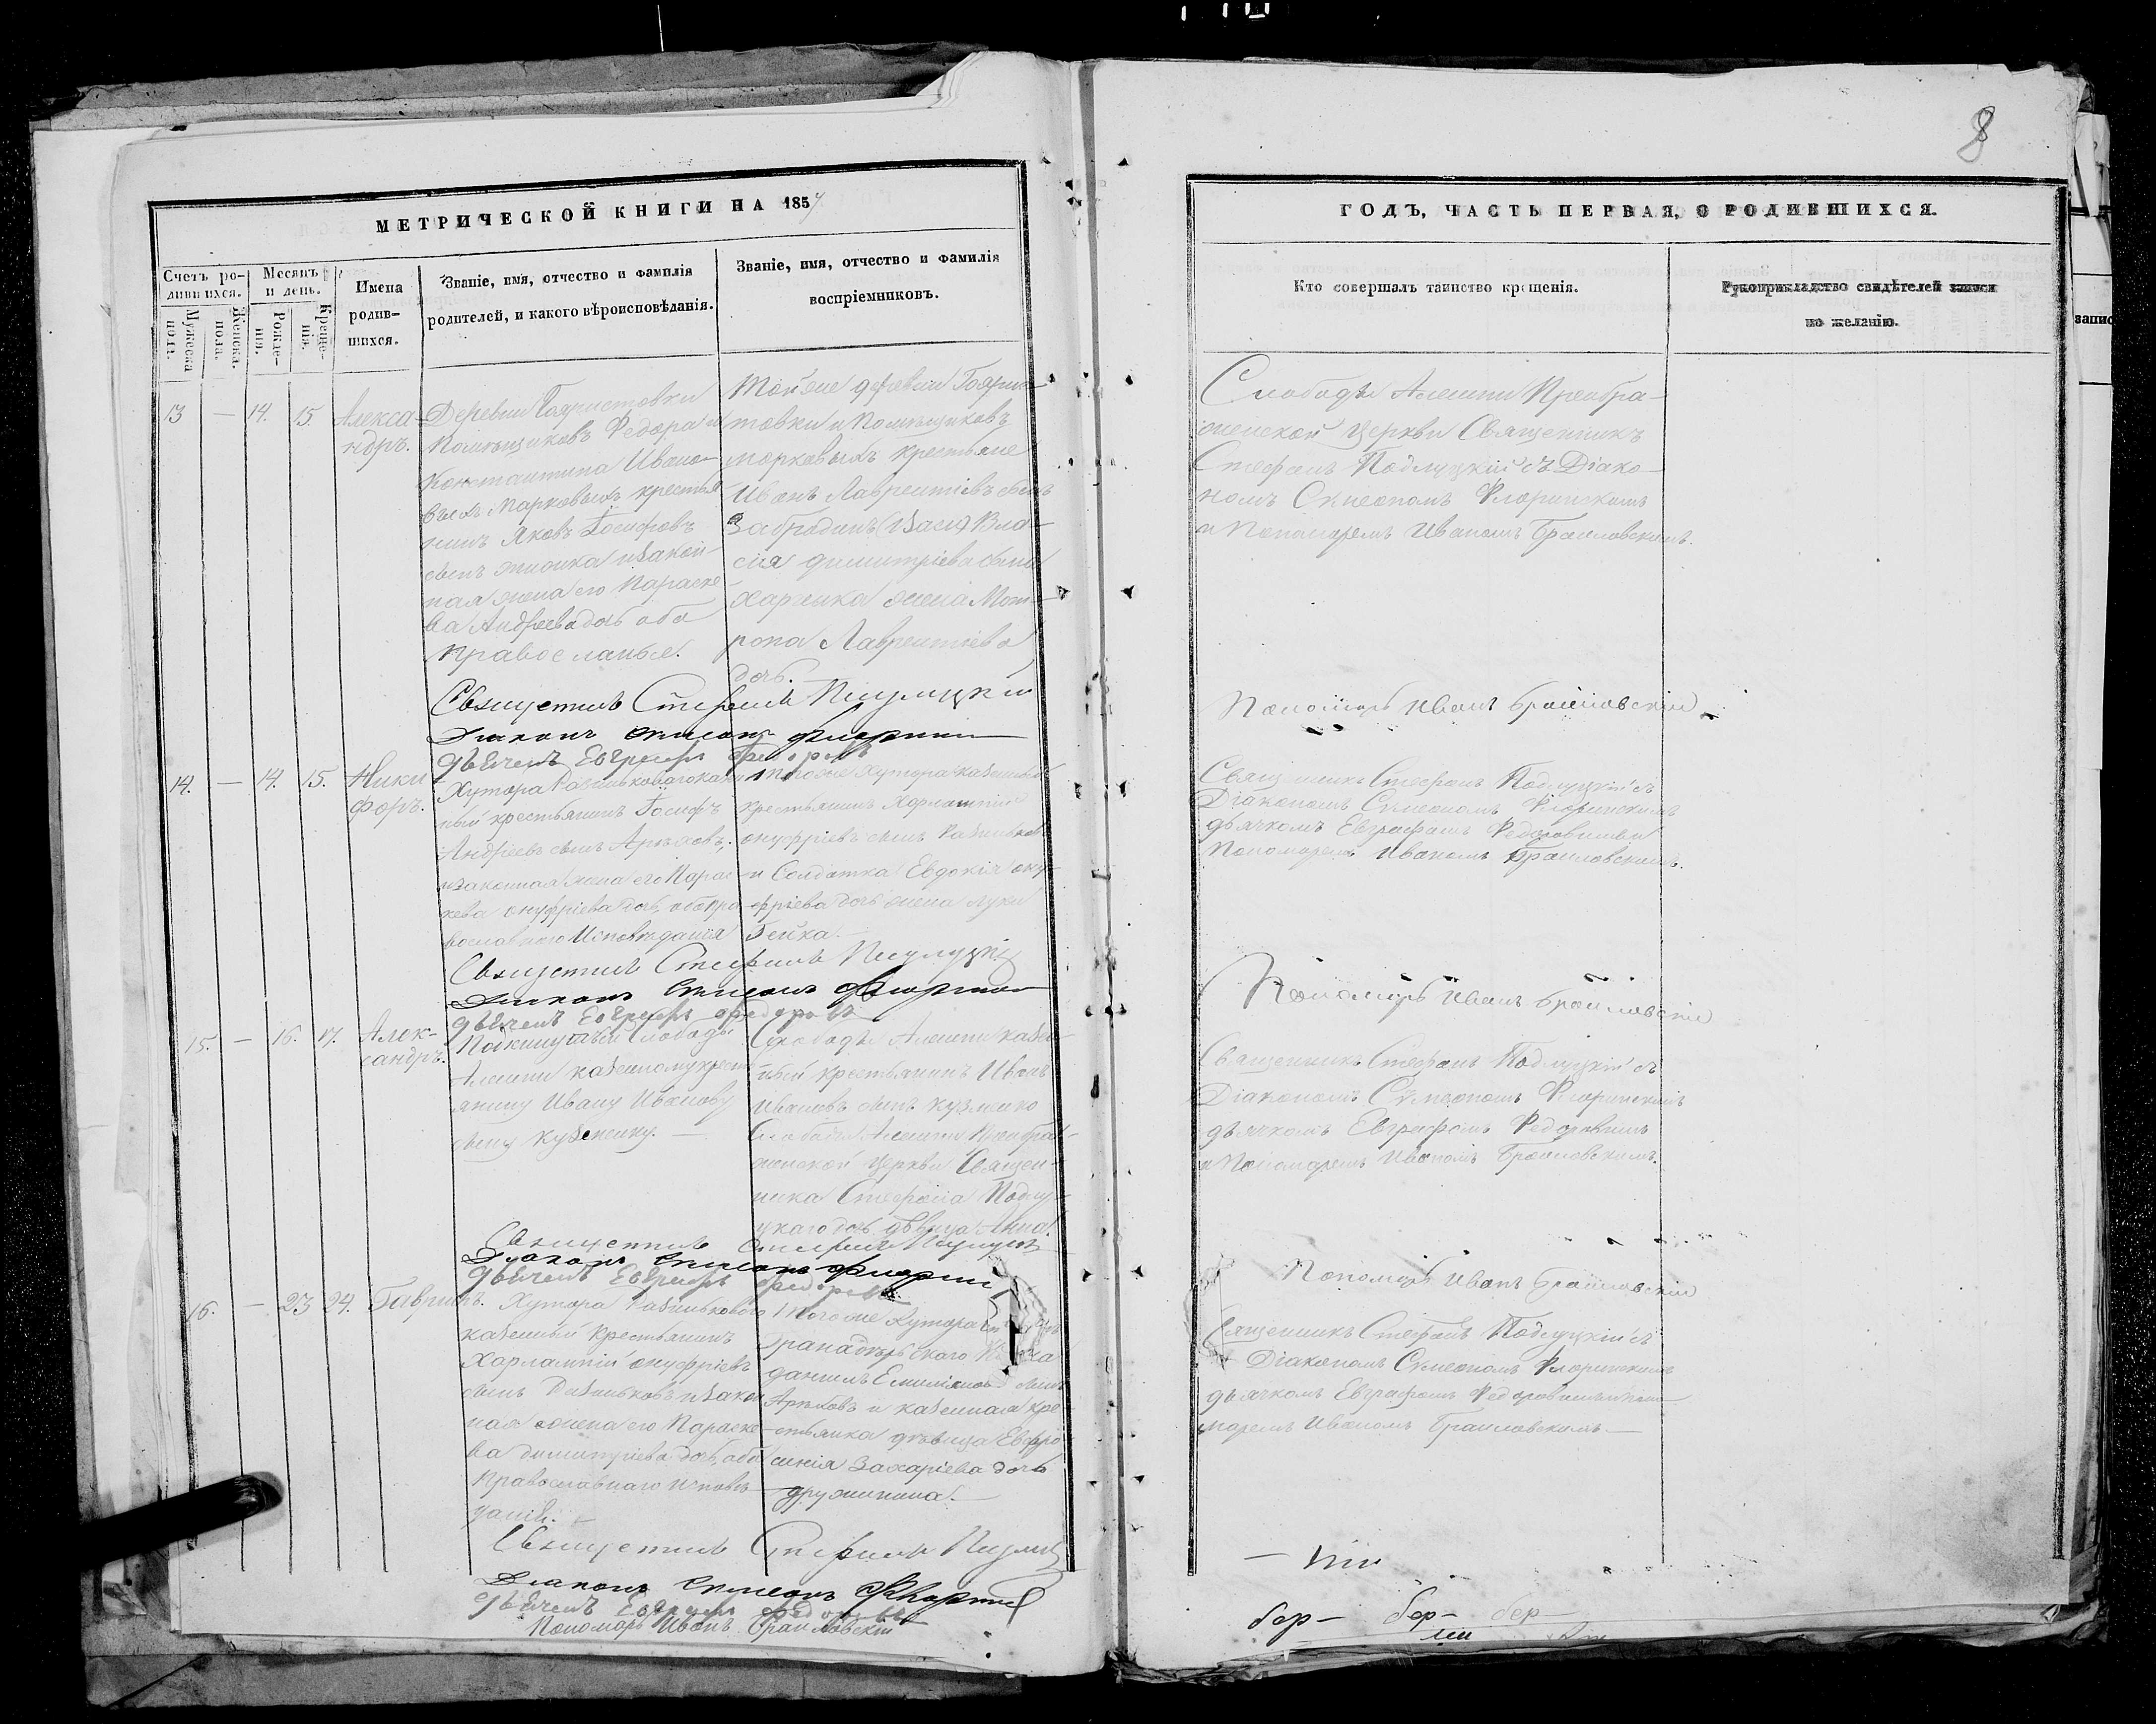 8
МЕТРИЧЕСКОЙ КНИГИ НА 1857
Счетъ ро-
дившихся.
Мужеска
пола.
Женска.
пола.
Месяцъ
и день.
Рожде-
нія.
Креще-
нія.
Имена
родив-
шихся.
Званіе, имя, отчество и фамилія
родителей, и какого вѣроисповѣданія.
Званіе, имя, отчество и фамилія
воспріемниковъ.
13 — 14. 15.
Алекса-
ндръ.
Деревни Бояристовки
Помѣщиковъ Федора и
Константина Ивано-
выхъ Марковыхъ крестья
нинъ Яковъ Іосифовъ
сынъ и закон-
ная жена его Параске-
ва Андреева дочь оба
православные.
Той же деревни Боярис-
товки и Помѣщиковъ
Марковыхъ крестьяне
Иванъ Лаврентіевъ сынъ
Забродинъ и Вла-
сія Димитріева сына
Харченка жена Мот-
рона Лаврентіева
дочь.
Священникъ Стефанъ Подлуцкій
Діаконъ Симеонъ Флорин
дьячекъ Евграфъ Федоровъ
14. — 14. 15.
Ники
форъ.
Хутора казен
ный крестьянинъ Іосифъ
Андреевъ сынъ
и законная жена его Парас-
кева Онуфріева дочь, оба пра
вославнаго Исповѣданія
Того же Хутора казенный
крестьянинъ Харлампій
Онуфріевъ сынъ
и Солдатка Евдокія Ону-
фріева дочь жена Луки
Гейка.
Священникъ Стефанъ Подлуцкій
Діаконъ Симеонъ Флорин
дьячекъ Евграфъ Федоровъ
15. — 16. 17.
Алек-
сандръ.
Подкинутый Слободы
Алешни казенному крест
янину Ивану Иванову
сыну Кузменку. —
Слободы Алешни казен-
ный крестьянинъ Иванъ
Ивановъ сынъ Кузменко
Слободы Алешни Преобра-
женской Церкви Священ-
ника Стефана Подлу-
цкаго дочь дѣвица Анна.
Священникъ Стефанъ Подлуцкій
Діаконъ Симеонъ Флорин
дьячекъ Евграфъ Федоровъ
16. — 23 24.
Гавріилъ.
Хутора
казенный крестьянинъ
Харлампій Онуфріевъ
сынъ и закон
ная жена его Параске-
ва Димитріева дочь, оба
Православнаго исповѣ-
данія. —
Того же Хутора
гранадерскаго
Даніилъ Емиліановъ сынъ
и казенная кре
стьянка дѣвица Евфро-
синія Захаріева дочь
Дружинина. —
Священникъ Стефанъ Подлуцкій
Діаконъ Симеонъ Флорин
дьячекъ Евграфъ Федоровъ
Пономарь Иванъ Браиловскій
ГОДЪ, ЧАСТЬ ПЕРВАЯ, О РОДИВШИХСЯ.
Кто совершалъ таинство крещенія.
Рукоприкладство свидѣтелей записи
по желанію.
Слободы Алешни Преобра-
женской Церкви Священникъ
Стефанъ Подлуцкій съ Діако-
номъ Симеономъ Флоринскимъ
и Пономаремъ Иваномъ Браиловскимъ.
Пономарь Иванъ Браиловскій
Священникъ Стефанъ Подлуцкій съ
Діакономъ Симеономъ Флоринскимъ
дьячкомъ Евграфомъ Федоровымъ и
Пономаремъ Иваномъ Браиловскимъ.
Пономарь Иванъ Браиловскій
Священникъ Стефанъ Подлуцкій съ
Діакономъ Симеономъ Флоринскимъ
дьячкомъ Евграфомъ Федоровымъ
и Пономаремъ Иваномъ Браиловскимъ.
Пономарь Иванъ Браиловскій
Священникъ Стефанъ Подлуцкій съ
Діакономъ Симеономъ Флоринскимъ
дьячкомъ Евграфомъ Федоровымъ и Поно-
маремъ Иваномъ Браиловскимъ. —
бер — бер — бер
запис